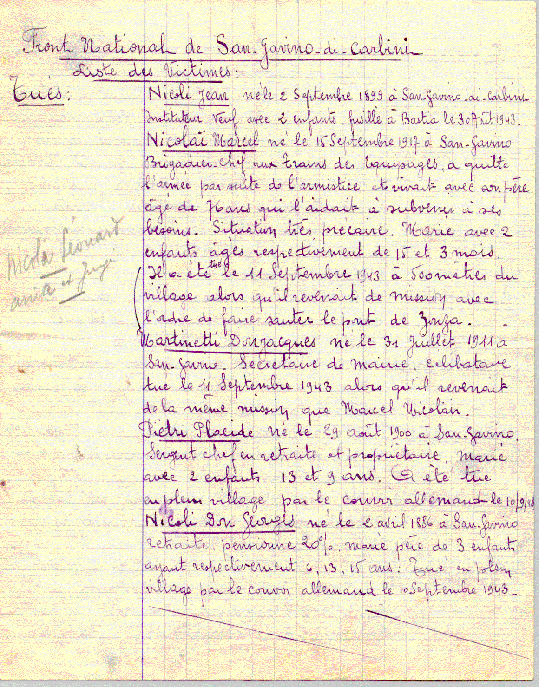 Front National de San-Gavino-di-Carbini
Liste des Victimes:
Tués:
Nicoli Jean né le 2 Septembre 1899 à San-Gavino-di-Carbini
Instituteur Veuf avec 2 enfants fusillé à Bastia le 30 Août 1943.
Nicolaï Marcel né le 15 Septembre 1917 à San-Gavino
Brigadier-Chef aux trains des Equipages, a quitté
l'armée par suite de l'armistice et vivait avec son père
âgé de ans qui l'aidait à subvenir à ses
besoins. Situation très précaire. Marié avec 2
enfants âgés respectivement de 15 et 3 mois.
Il a été tué le 11 Septembre 1943 à 500 mètres du
village alors qu'il revenait de mission avec
l'ordre de faire sauter le pont de Zonza.
Nicolaï Léonard
Martinetti Don Jacques né le 31 Juillet 1911 à
San-Gavino. Secrétaire de Mairie, célibataire
tué le 11 Septembre 1943 alors qu'il revenait
de la même mission que Marcel Nicolaï.
Piétri Placide né le 29 août 1900 à San-Gavino
Sergent chef en retraite et propriétaire marié
avec 2 enfants 13 et 9 ans. A été tué
en plein village par le convoi allemand le 10/9/
Nicoli Don Georges né le 2 avril 1886 à San-Gavino
retraité, pensionné 20%, marié père de 3 enfants
ayant respectivement 6, 13, 15 ans. Tué en plein
village par le convoi allemand le Septembre 1943.